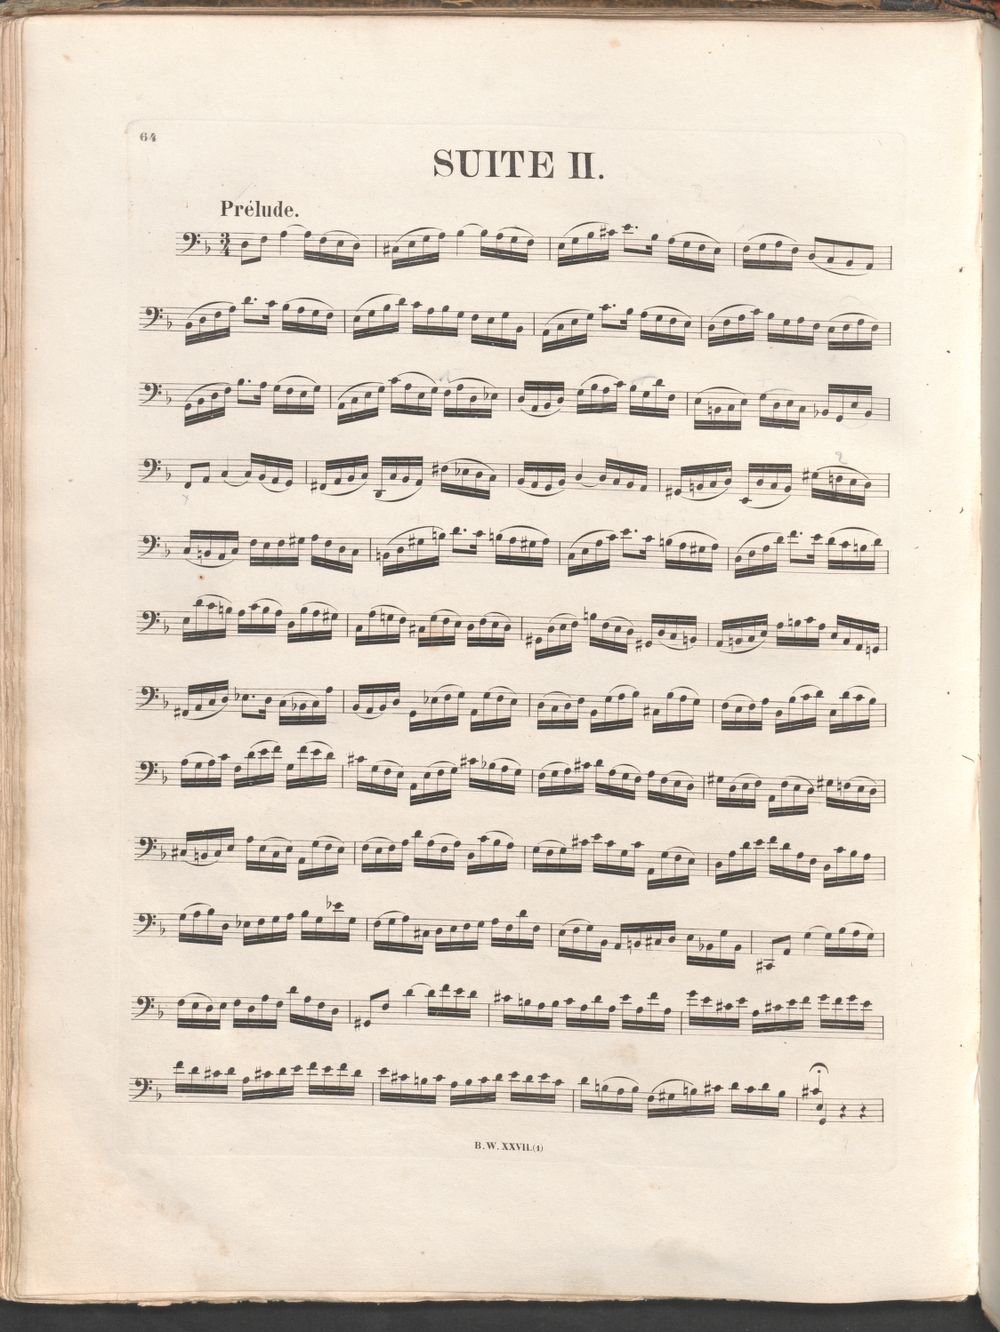 64
SUITE II.
Prélude.
3
4
B.W. XXVII.(1)